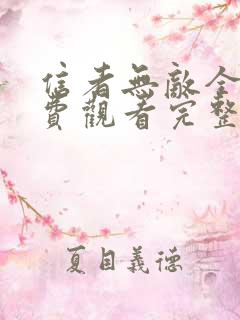 信者無敵全
費觀看完整
夏目義德